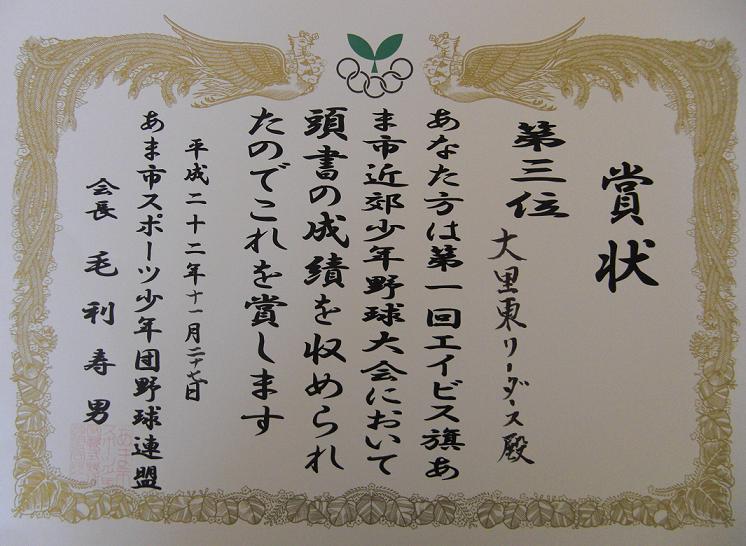 賞状
第三位
大里東リーダース殿
あなた方は第一回エイビス旗あ
ま市近郊少年野球大会において
頭書の成績を収められ
たのでこれを賞します
平成二十二年十一月二十七日
あま市スポーツ少年団野球連盟
会長 毛利寿男